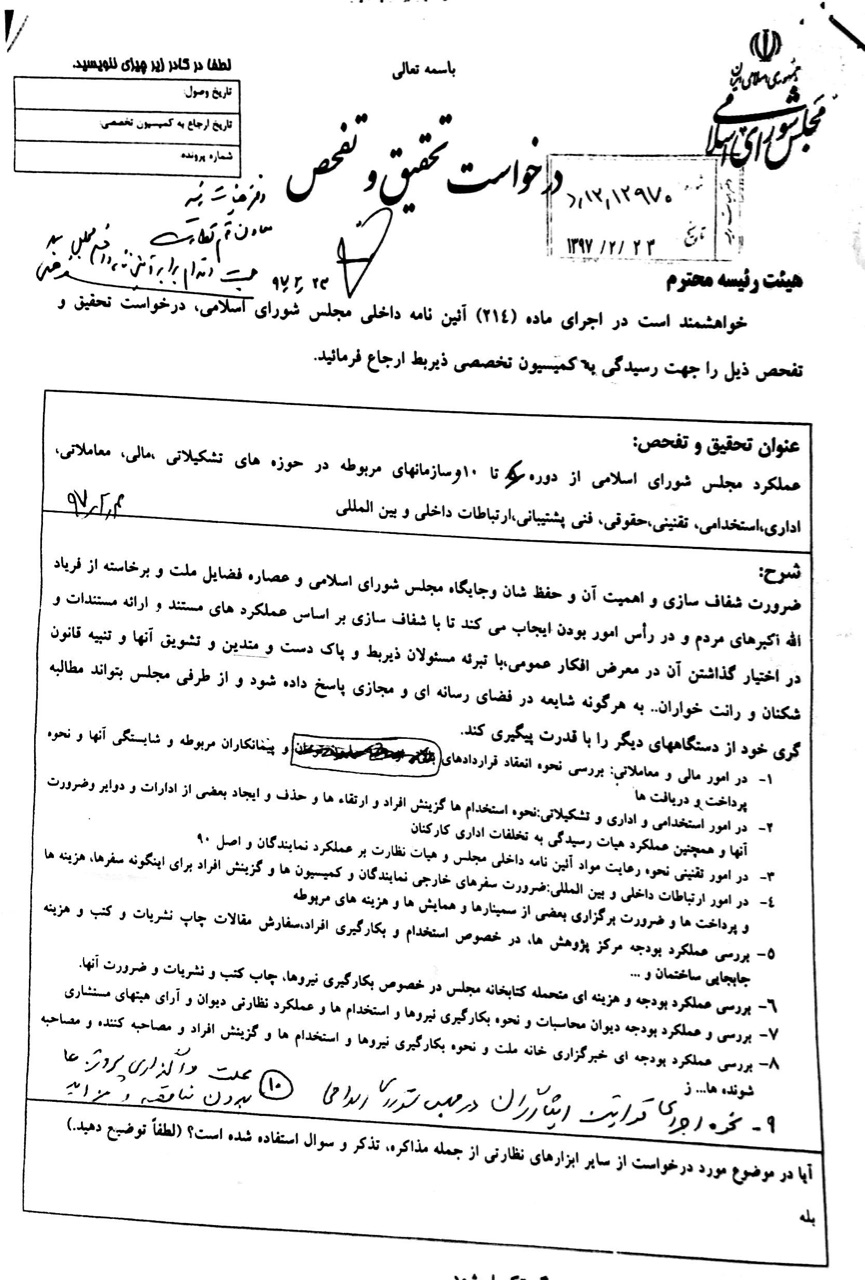 جمهوری اسلامی ایران
مجلس شورای اسلامی
باسمه تعالی
لطفا در کادر زیر چیزی ننویسید.
تاریخ وصول:
تاریخ ارجاع به کمیسیون تخصصی:
شماره پرونده
درخواست تحقیق و تفحص
شماره: ۱۲۹۷۰
تاریخ ۱۳۹۷/۲/۲۳
۹۷/۲/۲۳
هیئت رئیسه محترم
خواهشمند است در اجرای ماده (۲۱٤) آئین نامه داخلی مجلس شورای اسلامی، درخواست تحقیق و
تفحص ذیل را جهت رسیدگی به کمیسیون تخصصی ذیربط ارجاع فرمائید.
عنوان تحقیق و تفحص:
عملکرد مجلس شورای اسلامی از دوره تا ۱۰ وسازمانهای مربوطه در حوزه های تشکیلاتی ،مالی، معاملاتی،
اداری،استخدامی، تقنینی،حقوقی، فنی پشتیبانی،ارتباطات داخلی و بین المللی
شرح:
ضرورت شفاف سازی و اهمیت آن و حفظ شان وجایگاه مجلس شورای اسلامی و عصاره فضایل ملت و برخاسته از فریاد
الله اکبرهای مردم و در رأس امور بودن ایجاب می کند تا با شفاف سازی بر اساس عملکرد های مستند و ارائه مستندات و
در اختیار گذاشتن آن در معرض افکار عمومی،با تبرئه مسئولان ذیربط و پاک دست و متدین و تشویق آنها و تنبیه قانون
شکنان و رانت خواران.. به هرگونه شایعه در فضای رسانه ای و مجازی پاسخ داده شود و از طرفی مجلس بتواند مطالبه
گری خود از دستگاههای دیگر را با قدرت پیگیری کند.
۱- در امور مالی و معاملاتی: بررسی نحوه انعقاد قراردادهای و پیمانکاران مربوطه و شایستگی آنها و نحوه
پرداخت و دریافت ها
۲- در امور استخدامی و اداری و تشکیلاتی:نحوه استخدام ها گزینش افراد و ارتقاء ها و حذف و ایجاد بعضی از ادارات و دوایر وضرورت
آنها و همچنین عملکرد هیات رسیدگی به تخلفات اداری کارکنان
۳- در امور تقنینی نحوه رعایت مواد آئین نامه داخلی مجلس و هیات نظارت بر عملکرد نمایندگان و اصل ۹۰
٤- در امور ارتباطات داخلی و بین المللی:ضرورت سفرهای خارجی نمایندگان و کمیسیون ها و گزینش افراد برای اینگونه سفرها، هزینه ها
و پرداخت ها و ضرورت برگزاری بعضی از سمینارها و همایش ها و هزینه های مربوطه
۵- بررسی عملکرد بودجه مرکز پژوهش ها، در خصوص استخدام و بکارگیری افراد،سفارش مقالات چاپ نشریات و کتب و هزینه
جابجایی ساختمان و ...
۶- بررسی عملکرد بودجه و هزینه ای متحمله کتابخانه مجلس در خصوص بکارگیری نیروها، چاپ کتب و نشریات و ضرورت آنها.
۷- بررسی و عملکرد بودجه دیوان محاسبات و نحوه بکارگیری نیروها و استخدام ها و عملکرد نظارتی دیوان و آرای هیتهای مستشاری
۸- بررسی عملکرد بودجه ای خبرگزاری خانه ملت و نحوه بکارگیری نیروها و استخدام ها و گزینش افراد و مصاحبه کننده و مصاحبه
شونده ها... ز
۹- نحوه اجرای قوانین ایثارگران در مجلس شورای اسلامی
۱۰ علت واگذاری پروژه ها
بدون مناقصه و مزایده
آیا در موضوع مورد درخواست از سایر ابزارهای نظارتی از جمله مذاکره، تذکر و سوال استفاده شده است؟ (لطفاً توضیح دهید.)
بله